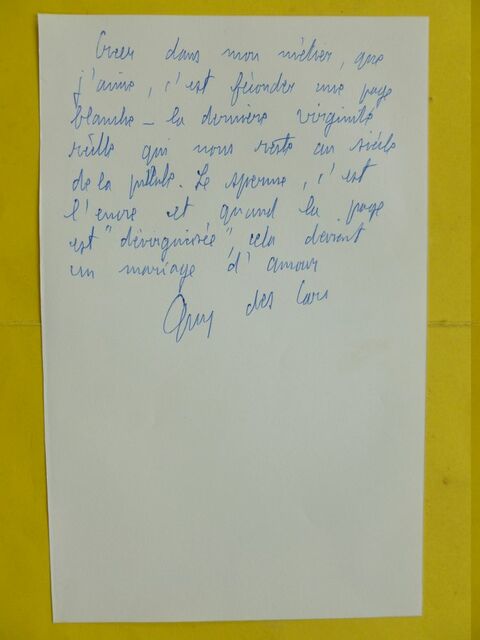 Créer dans mon métier, que
j'aime, c'est féconder une page
blanche - la dernière virginité
réelle qui nous reste au siècle
de la pilule. Le sperme, c'est
l'encre et quand la page
est "dévirginisée", cela devient
un mariage d'amour
Guy des Cars